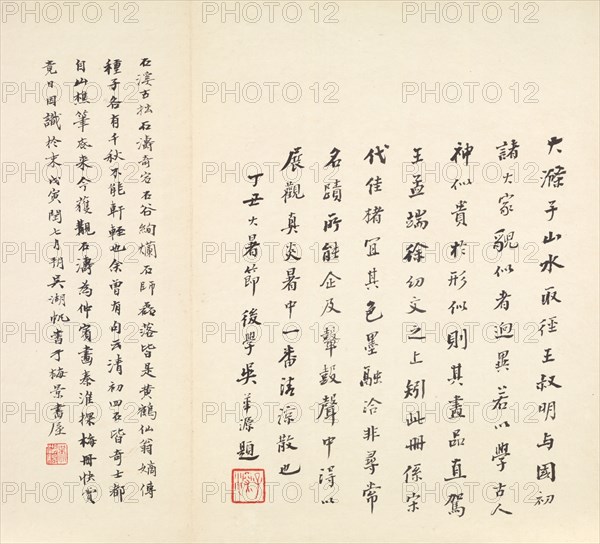 大滌子山水取徑王叔明与國初
諸大家貌似者迥異若以學古人
神似貴於形似則其畫品直駕
王孟端徐幼文之上矧此冊係宋
代佳楮宜其色墨融洽非尋常
名蹟所能企及鼙鼓聲中得以
展觀真炎暑中一番清涼散也
丁丑大暑節後學吳華源題
石溪古拙石濤奇宕石谷絢爛石師磊落皆是黃鶴仙翁嫡傳
種子各有千秋不能軒輊也余曾有句云清初四石皆奇士都
自山樵筆底來今獲觀石濤為仲賓畫秦淮探梅冊快賞
竟日因識於末戊寅閏七月朔吳湖帆書于梅景書屋
PHOTO12